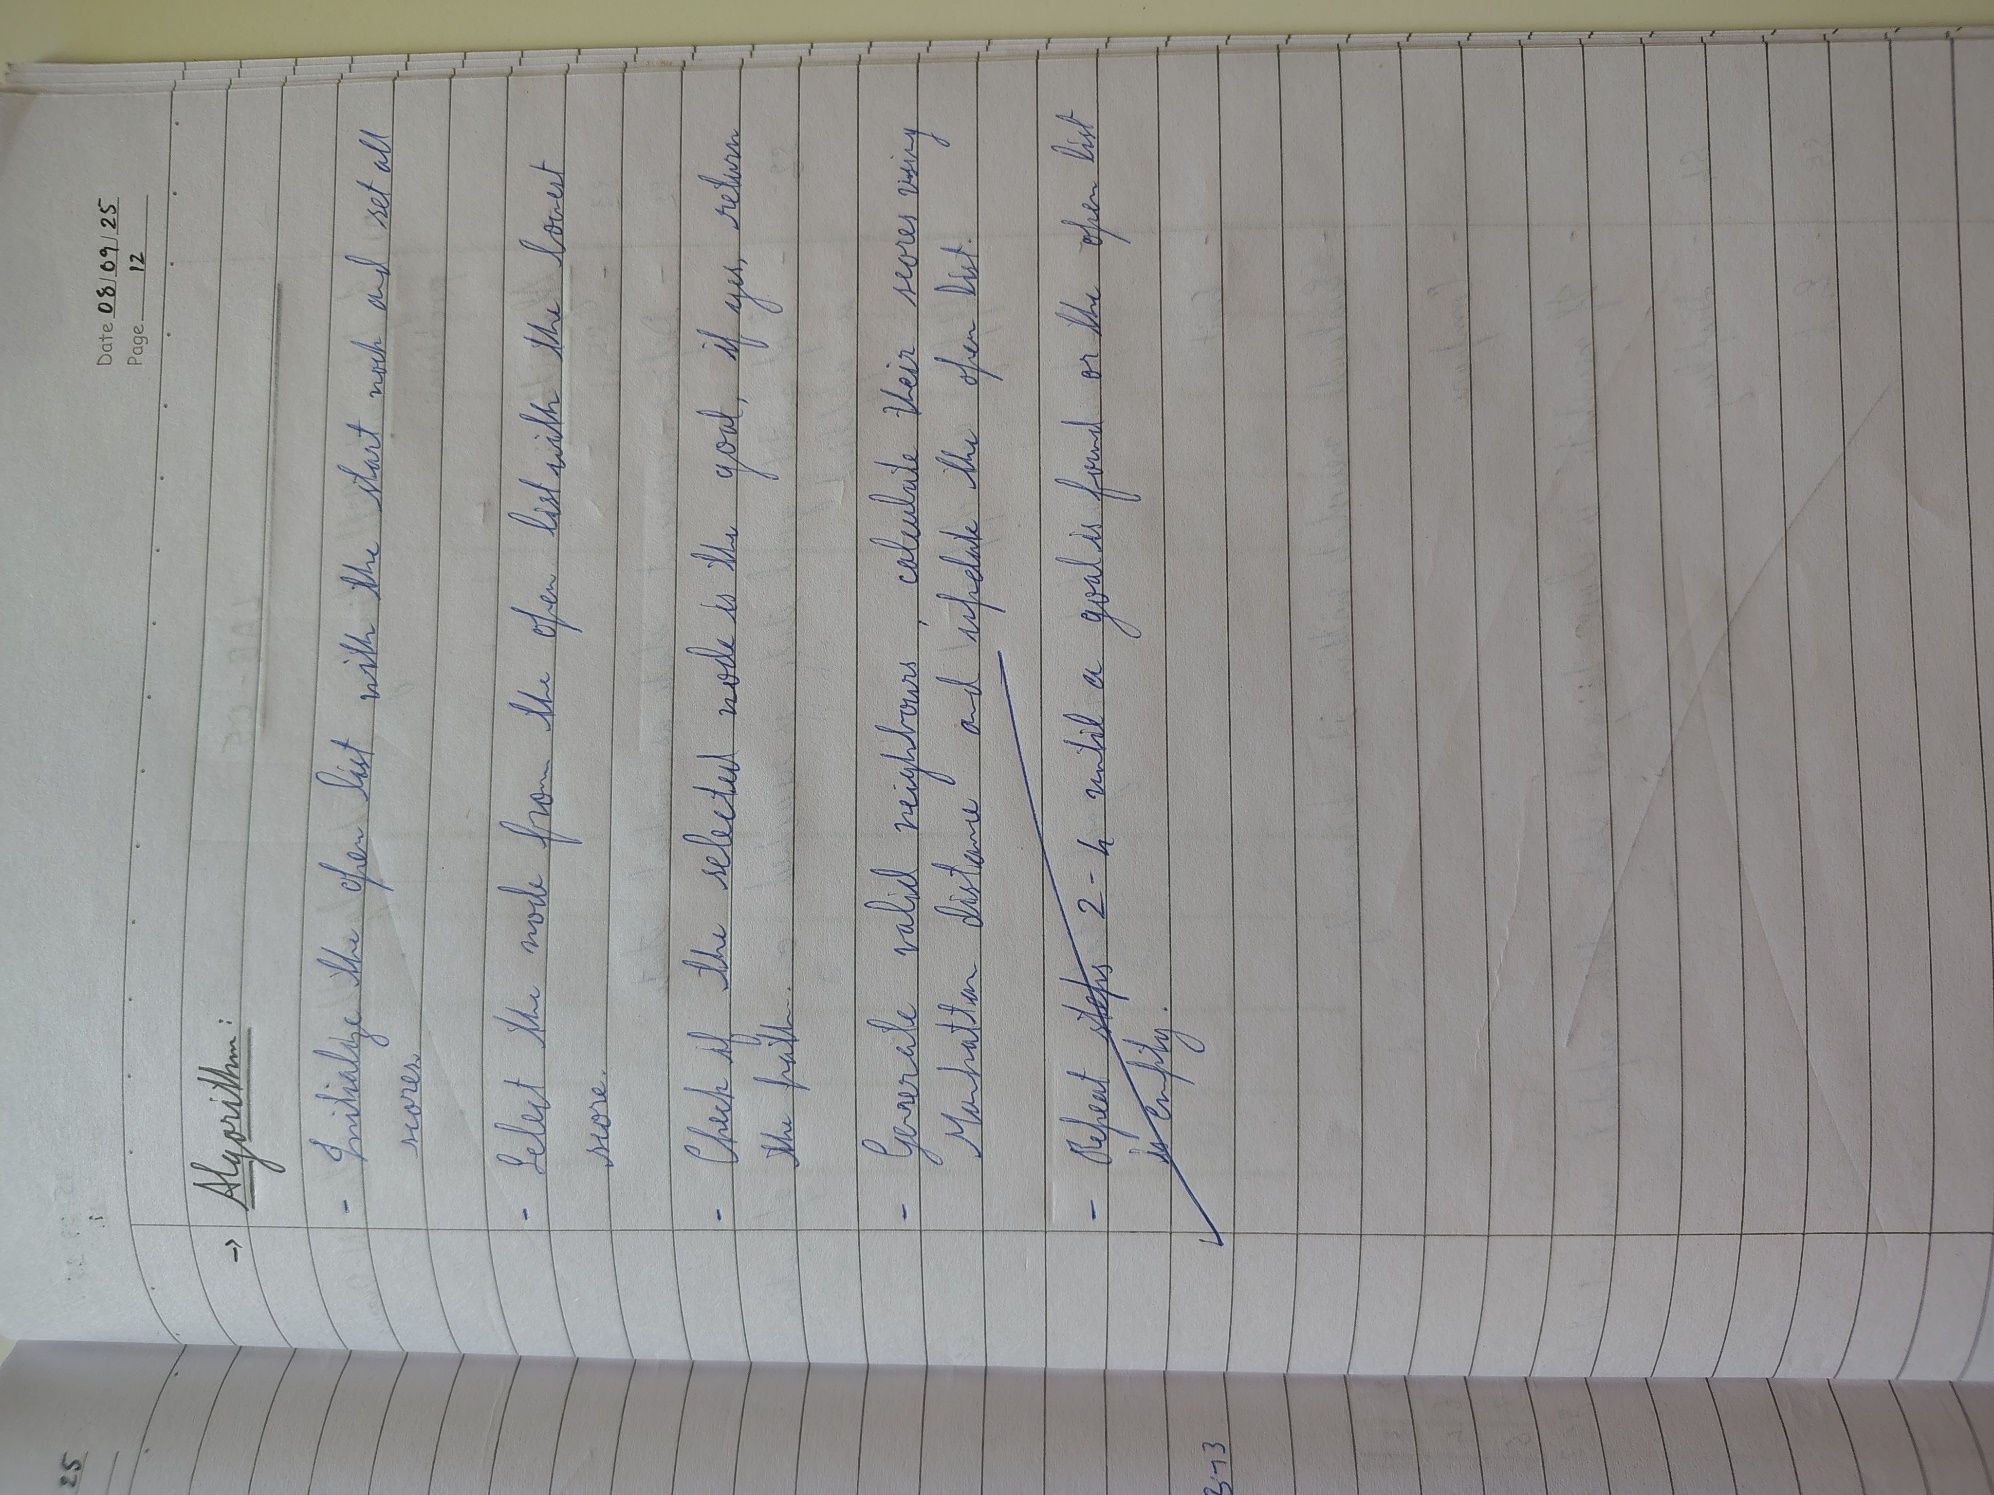 Date 08/09/25
Page 12
→ Algorithm:
- Initialize the open list with the start noch and set all
scores
- Select the node from the open list with the lowest
score.
- Check if the selected node is the goal, if yes, return
the path.
- Generate valid neighbours, calculate their scores using
Manhattan distance and update the open list.
- Repeat steps 2-4 until a goal is found or the open list
is empty.
25